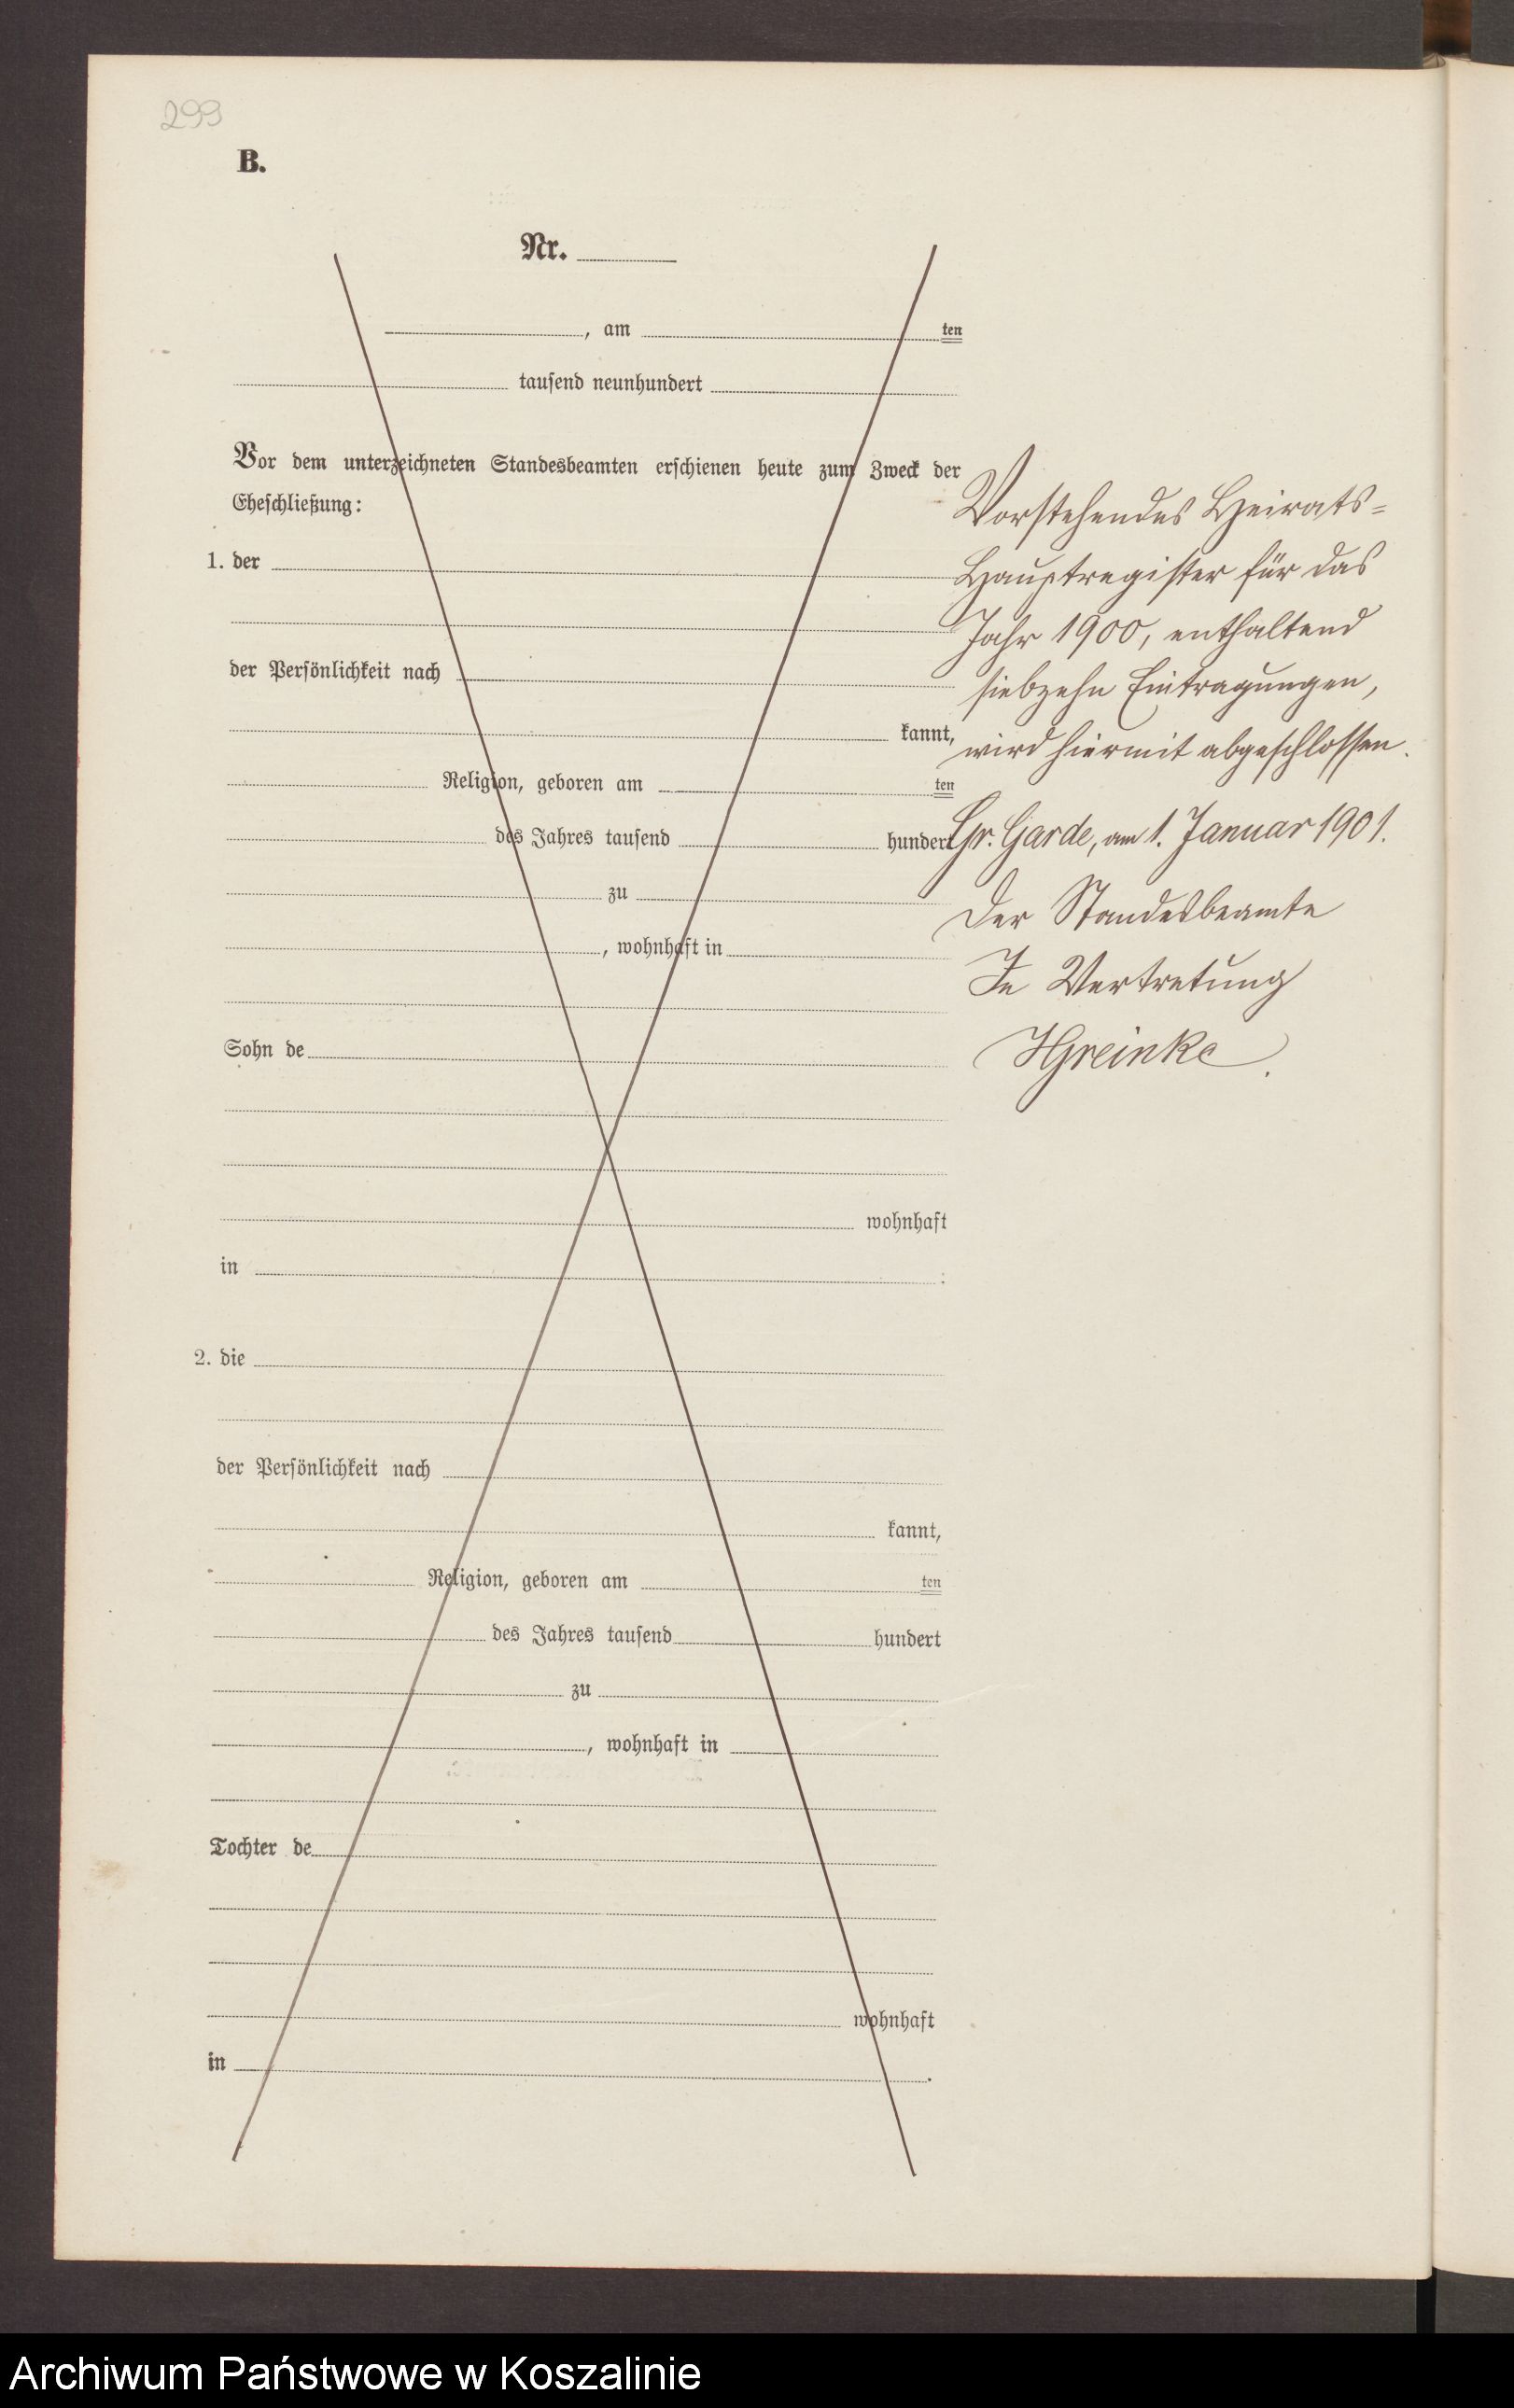 299
B.
Nr.
, am ten
tausend neunhundert
Vor dem unterzeichneten Standesbeamten erschienen heute zum Zweck der
Eheschließung:
1. der
der Persönlichkeit nach
kannt,
Religion, geboren am ten
des Jahres tausend hundert
zu
, wohnhaft in
Sohn de
wohnhaft
in :
2. die
der Persönlichkeit nach
kannt,
Religion, geboren am ten
des Jahres tausend hundert
zu
, wohnhaft in
Tochter de
wohnhaft
in .
Vorstehendes Heirats=
Hauptregister für das
Jahr 1900, enthaltend
siebzehn Eintragungen,
wird hiermit abgeschlossen.
Gr. Garde, am 1. Januar 1901.
Der Standesbeamte
In Vertretung
HGreinke.
Archiwum Państwowe w Koszalinie